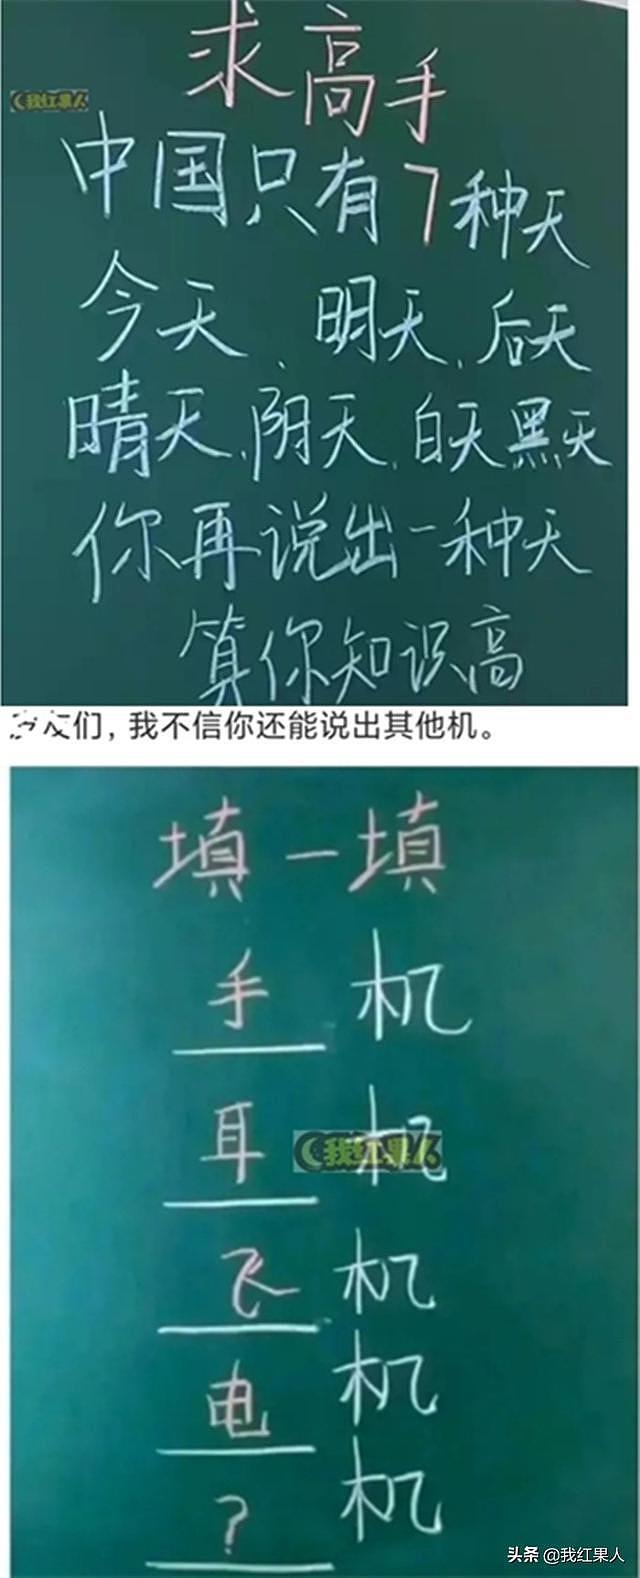 求高手
我红果人
中国只有7种天
今天、明天、后天
晴天、阴天、白天黑天
你再说出一种天
算你知识高
们，我不信你还能说出其他机。
填一填
手 机
耳 机
我红果人
飞 机
电 机
? 机
头条 @我红果人